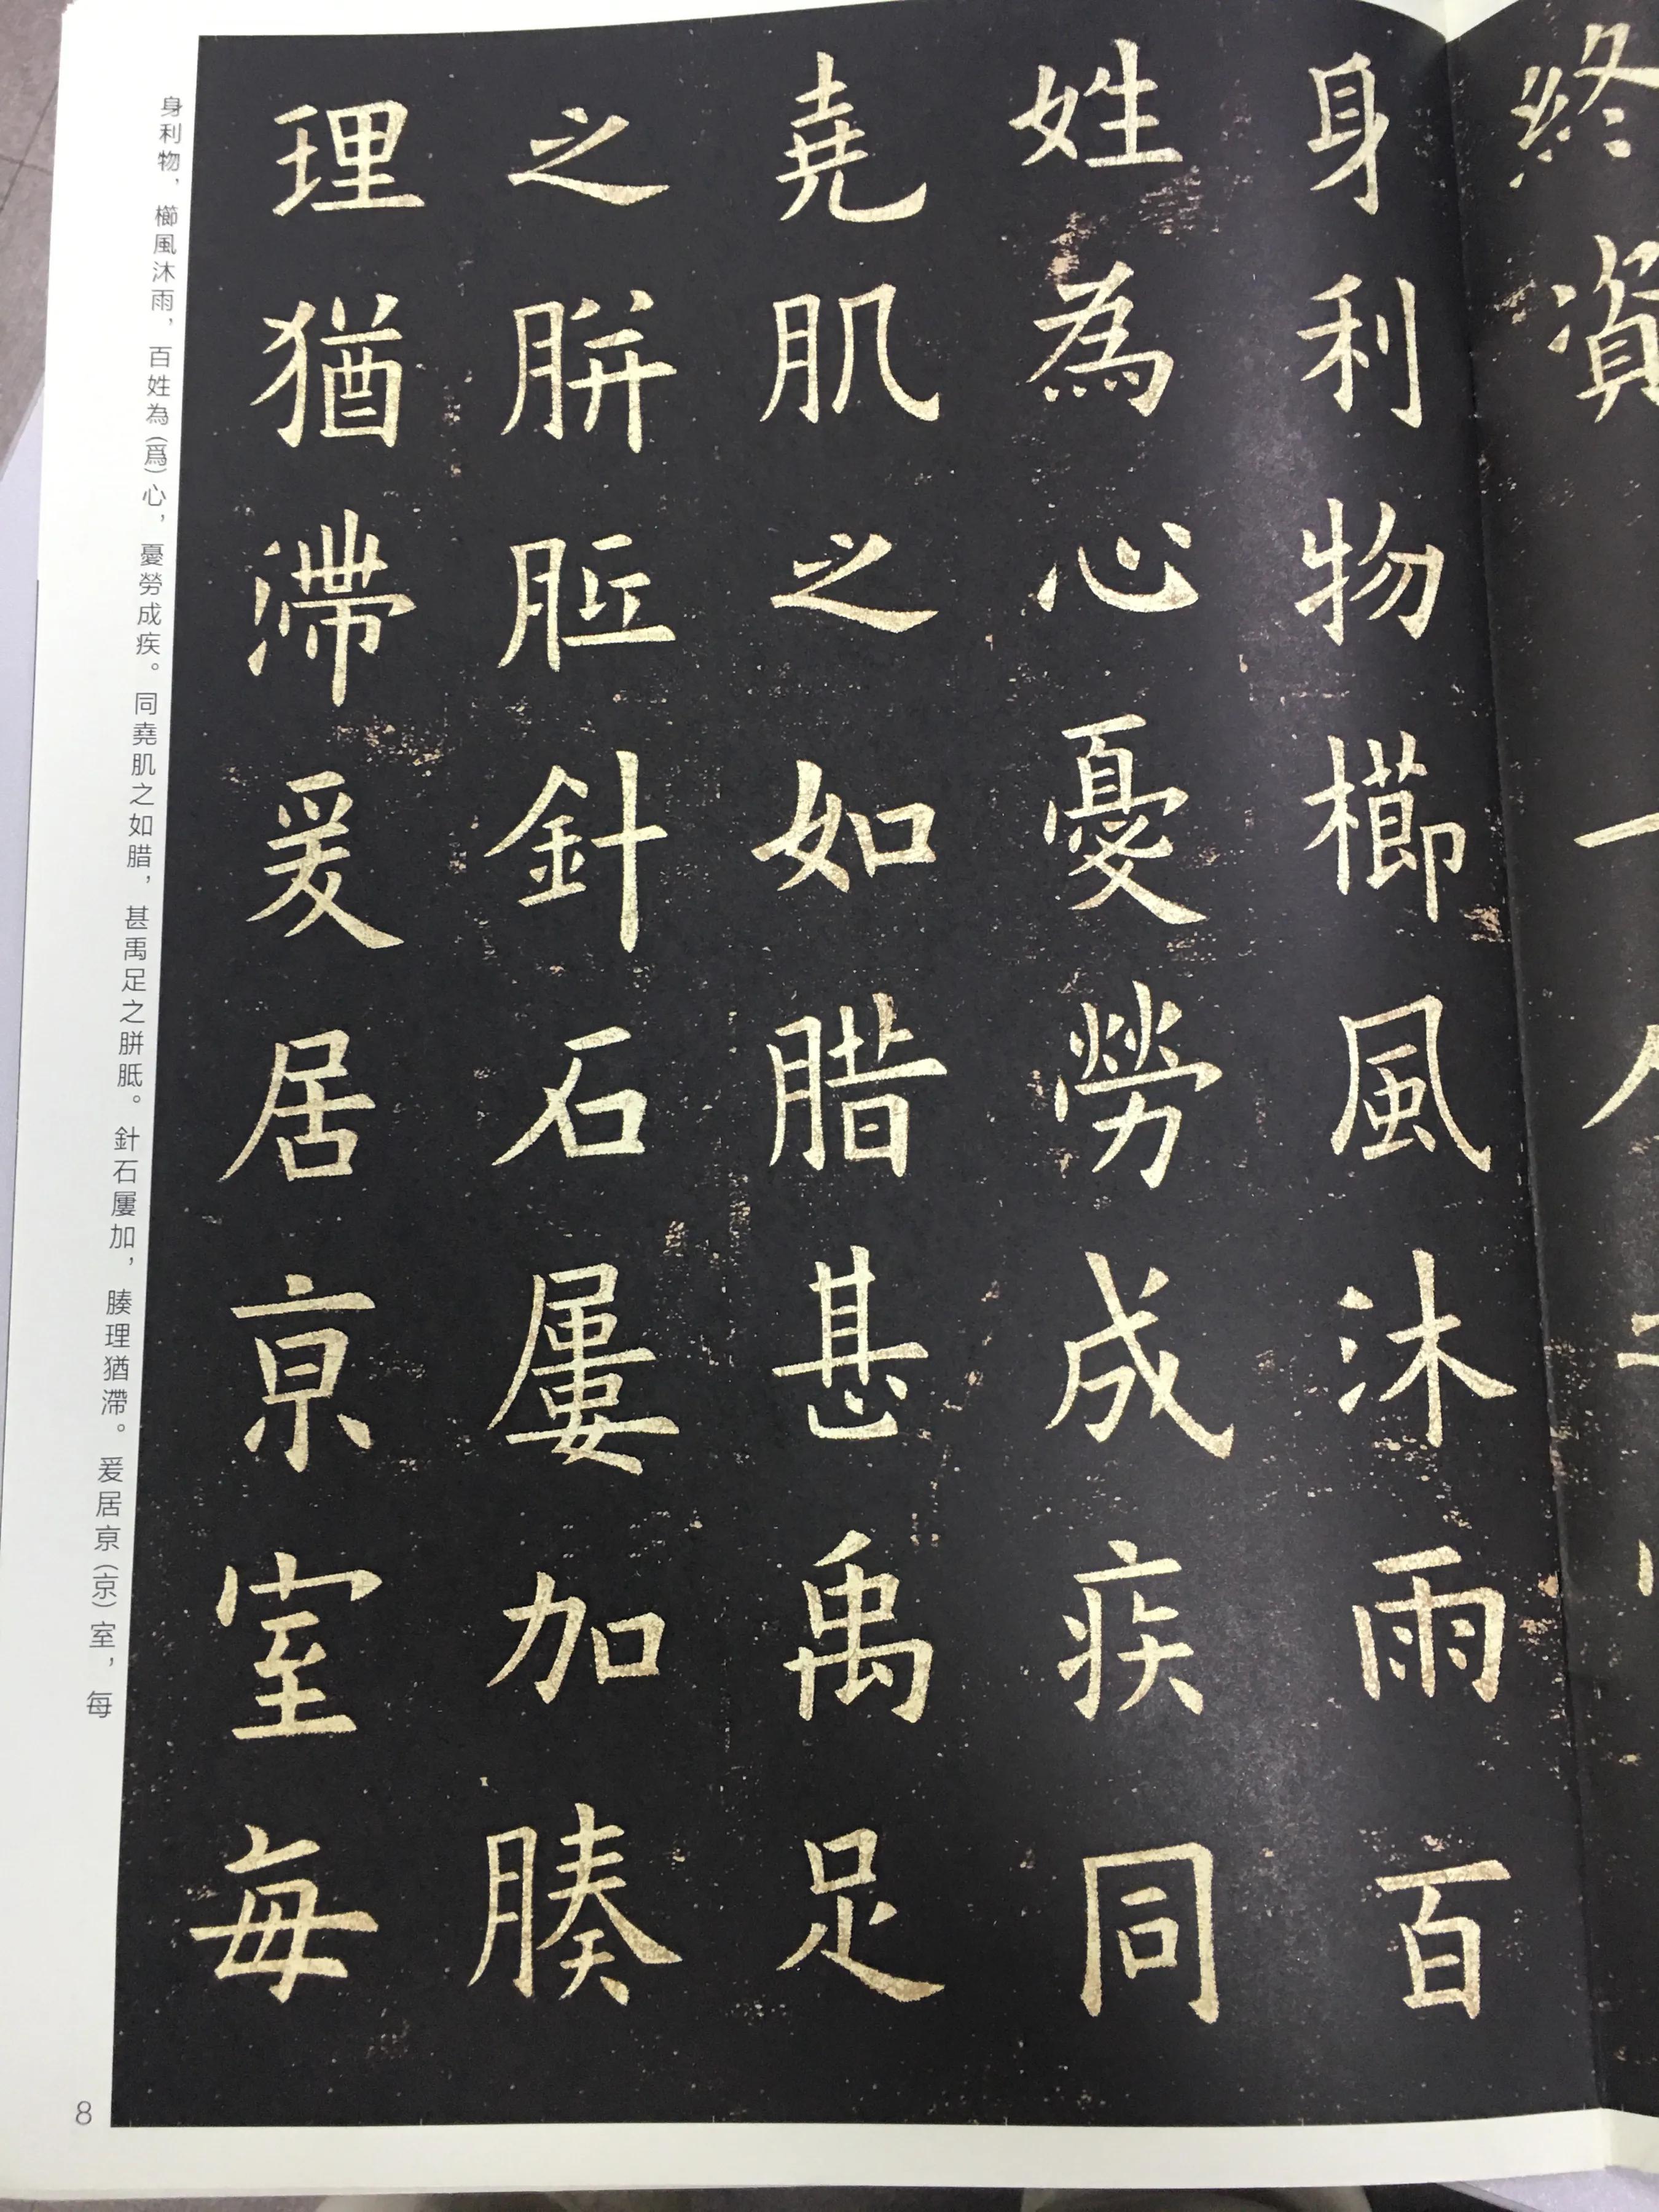 終資
身利物櫛風沐雨百
姓為心憂勞成疾同
堯肌之如腊甚禹足
之胼胝針石屢加腠
理猶滯爰居亰室每
身利物，櫛風沐雨，百姓為（爲）心，憂勞成疾。同堯肌之如腊，甚禹足之胼胝。針石屢加，腠理猶滯。爰居亰（京）室，每
8